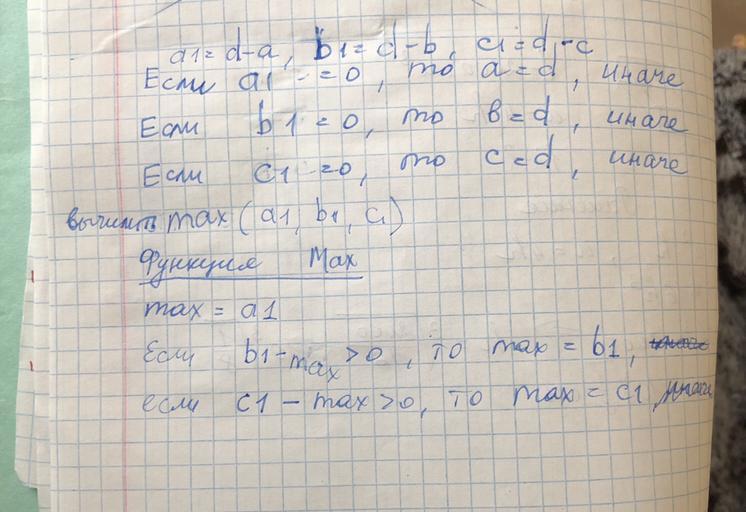 a1=d-a, b1=d-b, c1=d-c
Если a1 = 0, то a=d, иначе
Если b1=0, то в=d, иначе
Если c1=0, то c=d, иначе
max(a1, b1, c1)
Функция Max
max = a1
Если b1-max>0, то max = b1,
если c1 - max>0, то max = c1, иначе